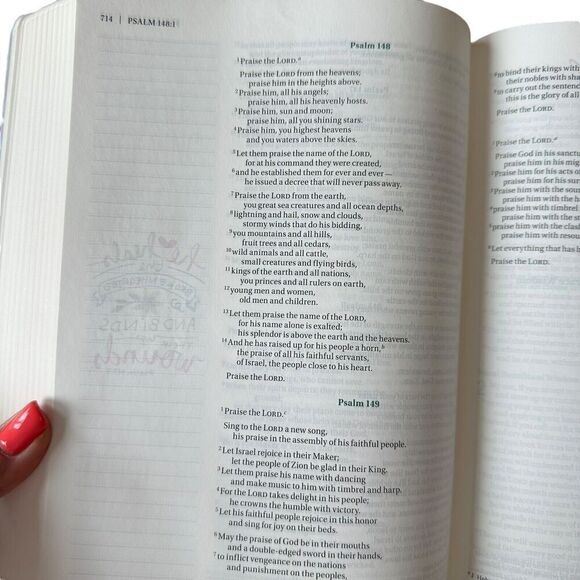 714 | PSALM 148:1
Psalm 148
1 Praise the LORD.a
Praise the LORD from the heavens;
praise him in the heights above.
2 Praise him, all his angels;
praise him, all his heavenly hosts.
3 Praise him, sun and moon;
praise him, all you shining stars.
4 Praise him, you highest heavens
and you waters above the skies.
5 Let them praise the name of the LORD,
for at his command they were created,
6 and he established them for ever and ever —
he issued a decree that will never pass away.
7 Praise the LORD from the earth,
you great sea creatures and all ocean depths,
8 lightning and hail, snow and clouds,
stormy winds that do his bidding,
9 you mountains and all hills,
fruit trees and all cedars,
10 wild animals and all cattle,
small creatures and flying birds,
11 kings of the earth and all nations,
you princes and all rulers on earth,
12 young men and women,
old men and children.
13 Let them praise the name of the LORD,
for his name alone is exalted;
his splendor is above the earth and the heavens.
14 And he has raised up for his people a horn,b
the praise of all his faithful servants,
of Israel, the people close to his heart.
Praise the LORD.
Psalm 149
1 Praise the LORD.c
Sing to the LORD a new song,
his praise in the assembly of his faithful people.
2 Let Israel rejoice in their Maker;
let the people of Zion be glad in their King.
3 Let them praise his name with dancing
and make music to him with timbrel and harp.
4 For the LORD takes delight in his people;
he crowns the humble with victory.
5 Let his faithful people rejoice in this honor
and sing for joy on their beds.
6 May the praise of God be in their mouths
and a double-edged sword in their hands,
7 to inflict vengeance on the nations
and punishment on the peoples,
8 to bind their kings with
their nobles with sha
9 to carry out the senten
this is the glory of all
Praise the LORD.
1 Praise the LORD.d
Praise God in his sanctu
praise him in his migh
2 Praise him for his acts of
praise him for his sur
3 Praise him with the soun
praise him with the ha
4 praise him with timbrel
praise him with the st
5 praise him with the clash
praise him with resou
6 Let everything that has b
Praise the LORD.